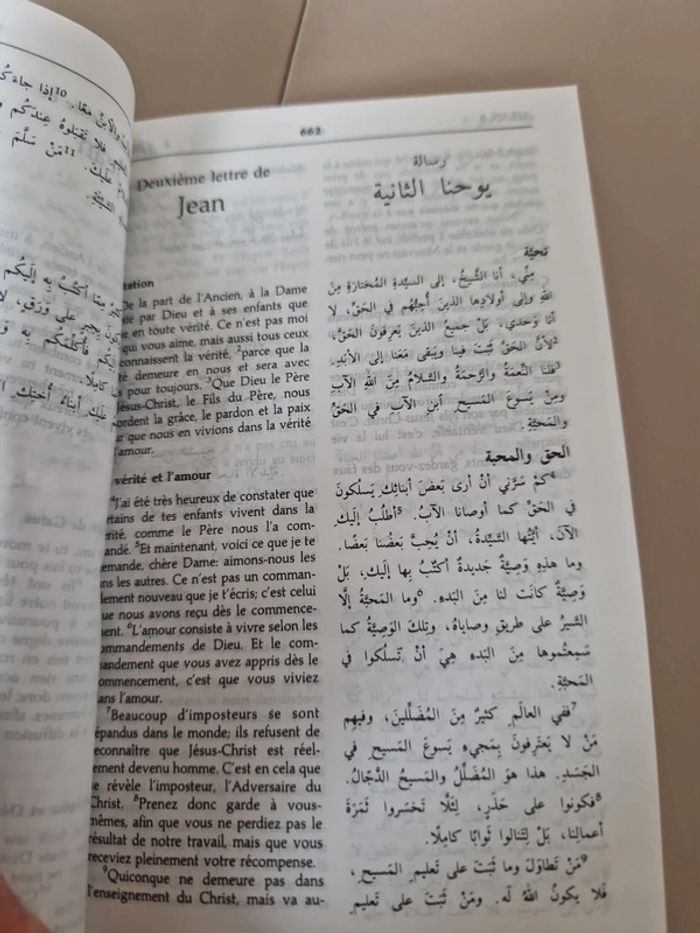 والابنُ معًا. 10إذا جاءَ
فلا تَقبَلوهُ عِندَكُم
11مَنْ سَلَّمَ
أكتُبُ بِهِ إلَيكُم
على وَرَقٍ،
كامِلًا.
أبناءُ أُختِكِ
662
Deuxième lettre de
Jean
tation
De la part de l'Ancien, à la Dame
ie par Dieu et à ses enfants que
e en toute vérité. Ce n'est pas moi
qui vous aime, mais aussi tous ceux
connaissent la vérité, 2parce que la
té demeure en nous et sera avec
s pour toujours. 3Que Dieu le Père
Jésus-Christ, le Fils du Père, nous
ordent la grâce, le pardon et la paix
ur que nous en vivions dans la vérité
l'amour.
vérité et l'amour
4J'ai été très heureux de constater que
rtains de tes enfants vivent dans la
érité, comme le Père nous l'a com-
andé. 5Et maintenant, voici ce que je te
emande, chère Dame: aimons-nous les
ns les autres. Ce n'est pas un comman-
lement nouveau que je t'écris; c'est celui
que nous avons reçu dès le commence-
ment. 6L'amour consiste à vivre selon les
commandements de Dieu. Et le com-
mandement que vous avez appris dès le
commencement, c'est que vous viviez
ans l'amour.
7Beaucoup d'imposteurs se sont
répandus dans le monde; ils refusent de
reconnaître que Jésus-Christ est réel-
lement devenu homme. C'est en cela que
se révèle l'imposteur, l'Adversaire du
Christ. 8Prenez donc garde à vous-
mêmes, afin que vous ne perdiez pas le
résultat de notre travail, mais que vous
receviez pleinement votre récompense.
9Quiconque ne demeure pas dans
l'enseignement du Christ, mais va au-
رسالة
يوحنا الثانية
تحيّة
مِنّي، أنا الشَّيخُ، إلى السيِّدةِ المُختارَةِ مِنَ
اللهِ وإلى أولادِها الذينَ أُحِبُّهُم في الحَقِّ، لا
أنا وَحدي، بَلْ جميعُ الذينَ يَعرِفونَ الحَقَّ،
2لأنَّ الحَقَّ ثَبَتَ فينا ويَبقى مَعَنا إلى الأبَدِ.
3فلَنا النِّعمَةُ والرَّحمَةُ والسَّلامُ مِنَ اللهِ الآبِ
ومِنْ يَسوعَ المَسيحِ ابنِ الآبِ في الحَقِّ
والمَحبَّةِ.
الحق والمحبة
4كَمْ سَرَّني أنْ أرى بَعضَ أبنائِكِ يَسلُكونَ
في الحَقِّ كما أوصانا الآبُ. 5أطلُبُ إلَيكِ
الآنَ، أيَّتُها السَّيِّدَةُ، أنْ يُحِبَّ بَعضُنا بَعضًا.
وما هذِهِ وَصِيَّةٌ جَديدةٌ أكتُبُ بِها إلَيكِ، بَلْ
وَصِيَّةٌ كانَت لنا مِنَ البَدءِ. 6وما المَحبَّةُ إلَّا
السَّيرُ على طَريقِ وصاياهُ، وتِلكَ الوَصِيَّةُ كما
سَمِعتُموها مِنَ البَدءِ هِيَ أنْ تَسلُكوا في
المَحبَّةِ.
7ففي العالَمِ كثيرٌ مِنَ المُضَلِّلينَ، وفيهِم
مَنْ لا يَعتَرِفونَ بِمَجيءِ يَسوعَ المَسيحِ في
الجَسَدِ. هذا هوَ المُضَلِّلُ والمَسيحُ الدَّجّالُ.
8فكونوا على حَذَرٍ، لِئَلَّا تَخسَروا ثَمَرَةَ
أعمالِنا، بَلْ لِتَنالوا ثَوابًا كامِلًا.
9مَنْ تَطاوَلَ وما ثَبَتَ على تَعليمِ المَسيحِ،
فلا يكونُ اللهُ لَه. ومَنْ ثَبَتَ على تَعليمِ